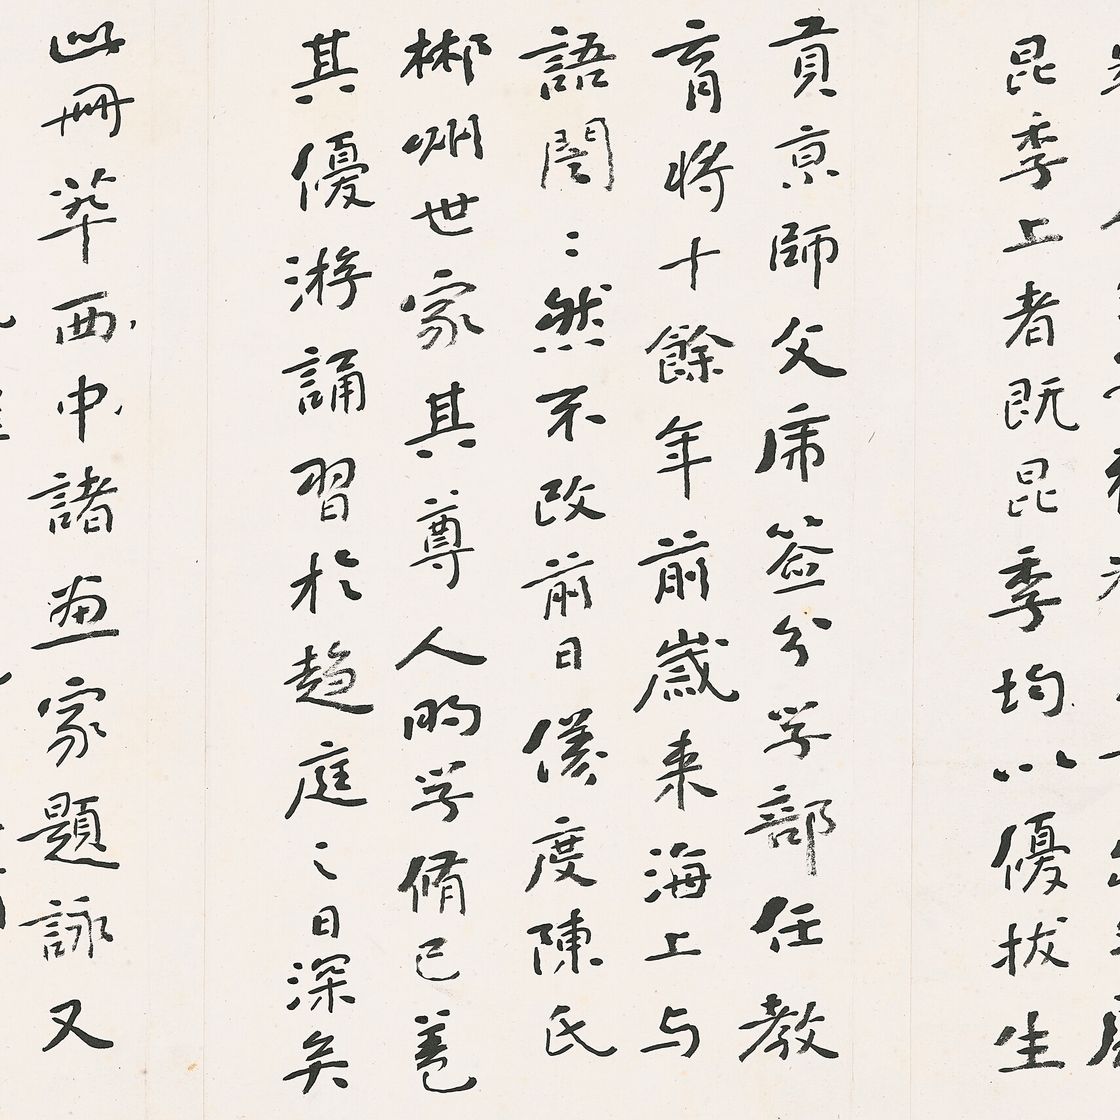 昆季上者既昆季均以優拔生
貢京師父席簽分学部任教
育將十餘年前歲来海上与
語誾〻然不改前日儀度陳氏
郴州世家其尊人昀学脩已養
其優游誦習於趨庭之日深矣
此冊萃西中諸畫家題詠又